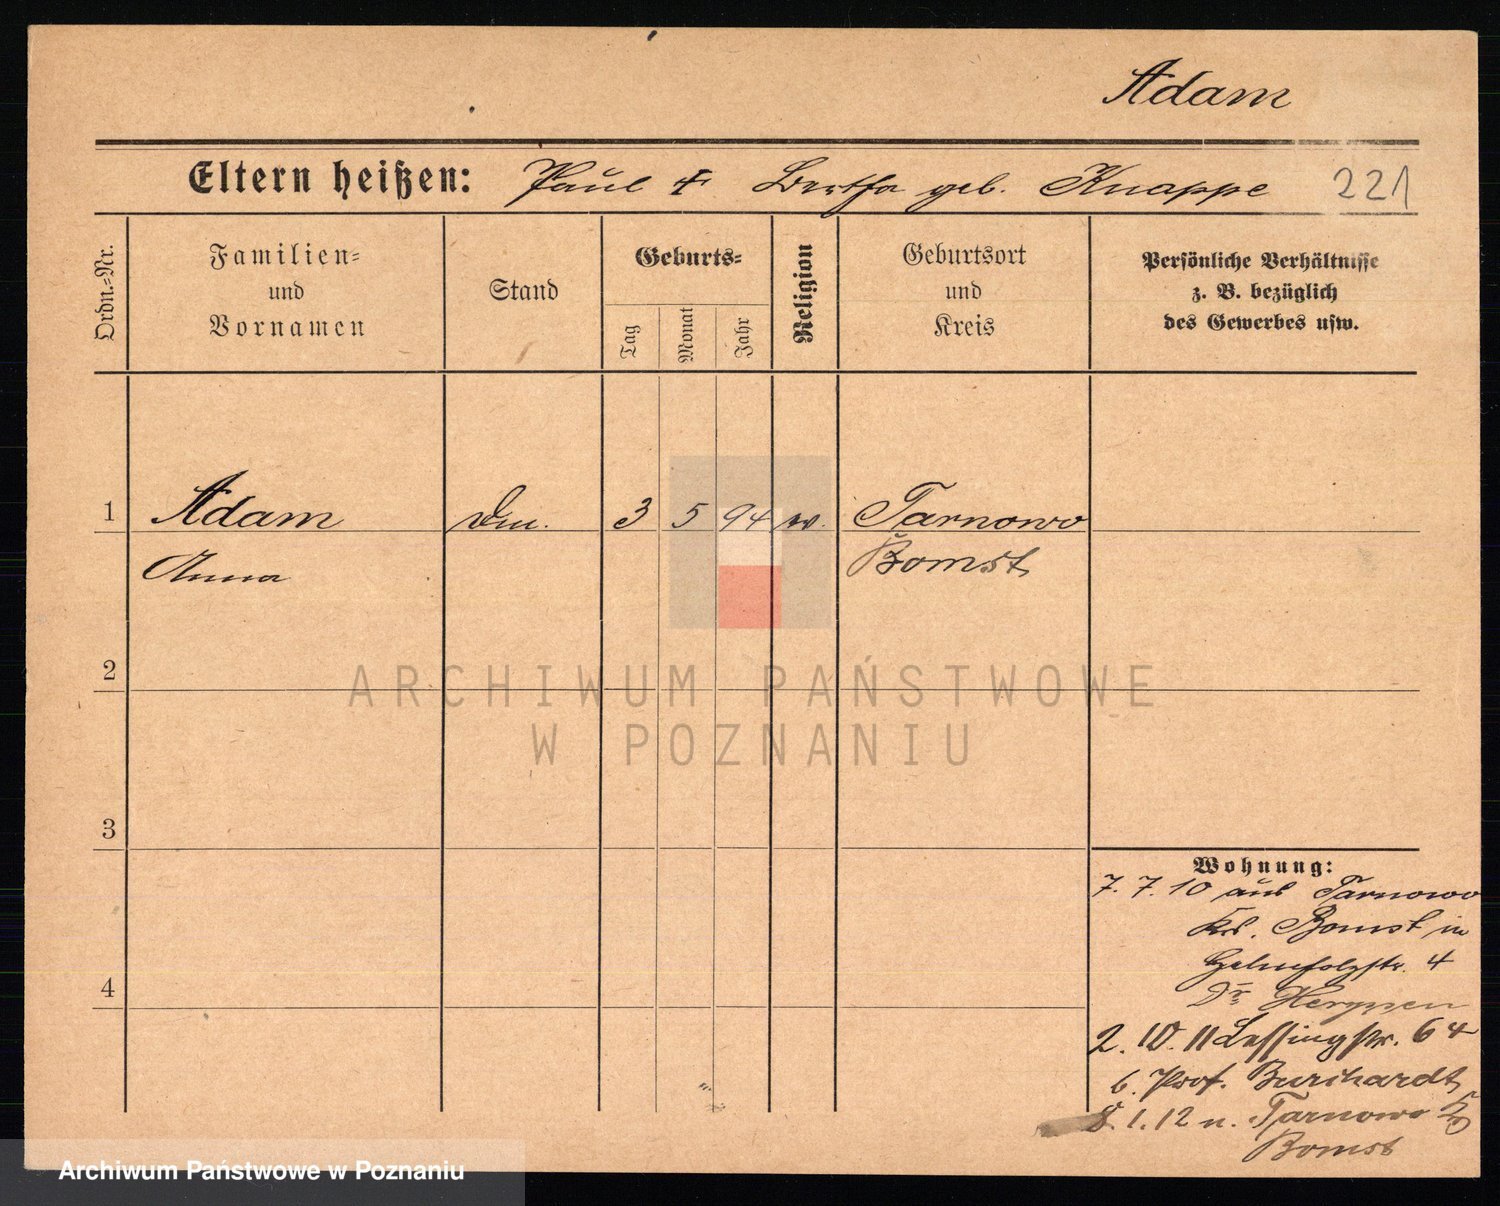 Adam
Eltern heißen: Paul & Bertha geb. Knappe 221
Ordn.-Nr.
Familien-
und
Vornamen
Stand
Geburts-
Tag
Monat
Jahr
Religion
Geburtsort
und
Kreis
Persönliche Verhältnisse
z. B. bezüglich
des Gewerbes usw.
1 Adam 3 5 94 Tarnowo
Anna Bomst
2
ARCHIWUM PAŃSTWOWE
W POZNANIU
3
4
Wohnung:
7. 7. 10 aus Tarnowo
Krs. Bomst in
4
Dr
2. 10. 11 Lessingstr. 64
b. Prof. Burchardt
8. 1. 12 n. Tarnowo
Bomst
Archiwum Państwowe w Poznaniu